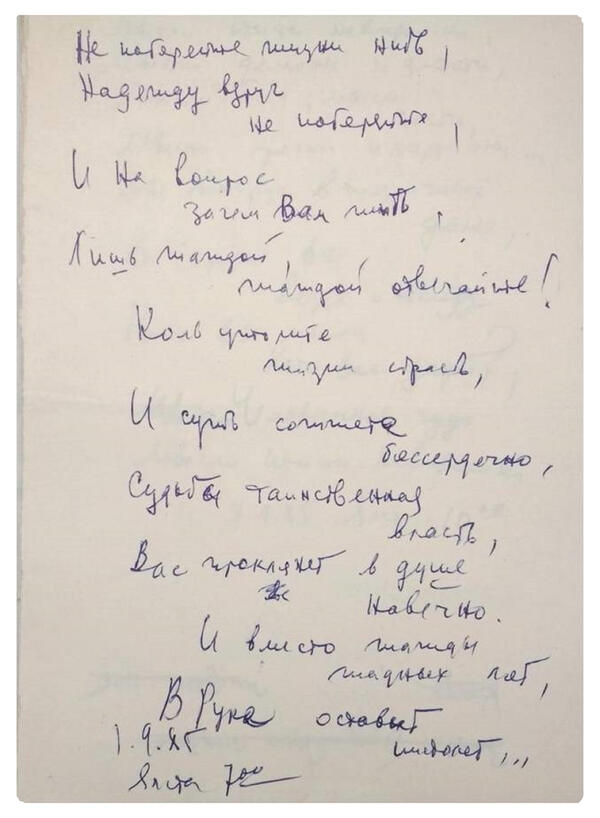 Не потеряйте жизни нить,
Надежду вдруг
не потеряйте,
И на вопрос
Зачем Вам жить,
Лишь жаждой,
жаждой отвечайте!
Коль утолите
жизни страсть,
И суть сожжете
бессердечно,
Судьбы таинственная
власть,
Вас проклянет в душе
навечно.
И вместо жажды
жадных лет,
В Руке оставит
пистолет,,,
1.9.85
Ялта 7⁰⁰